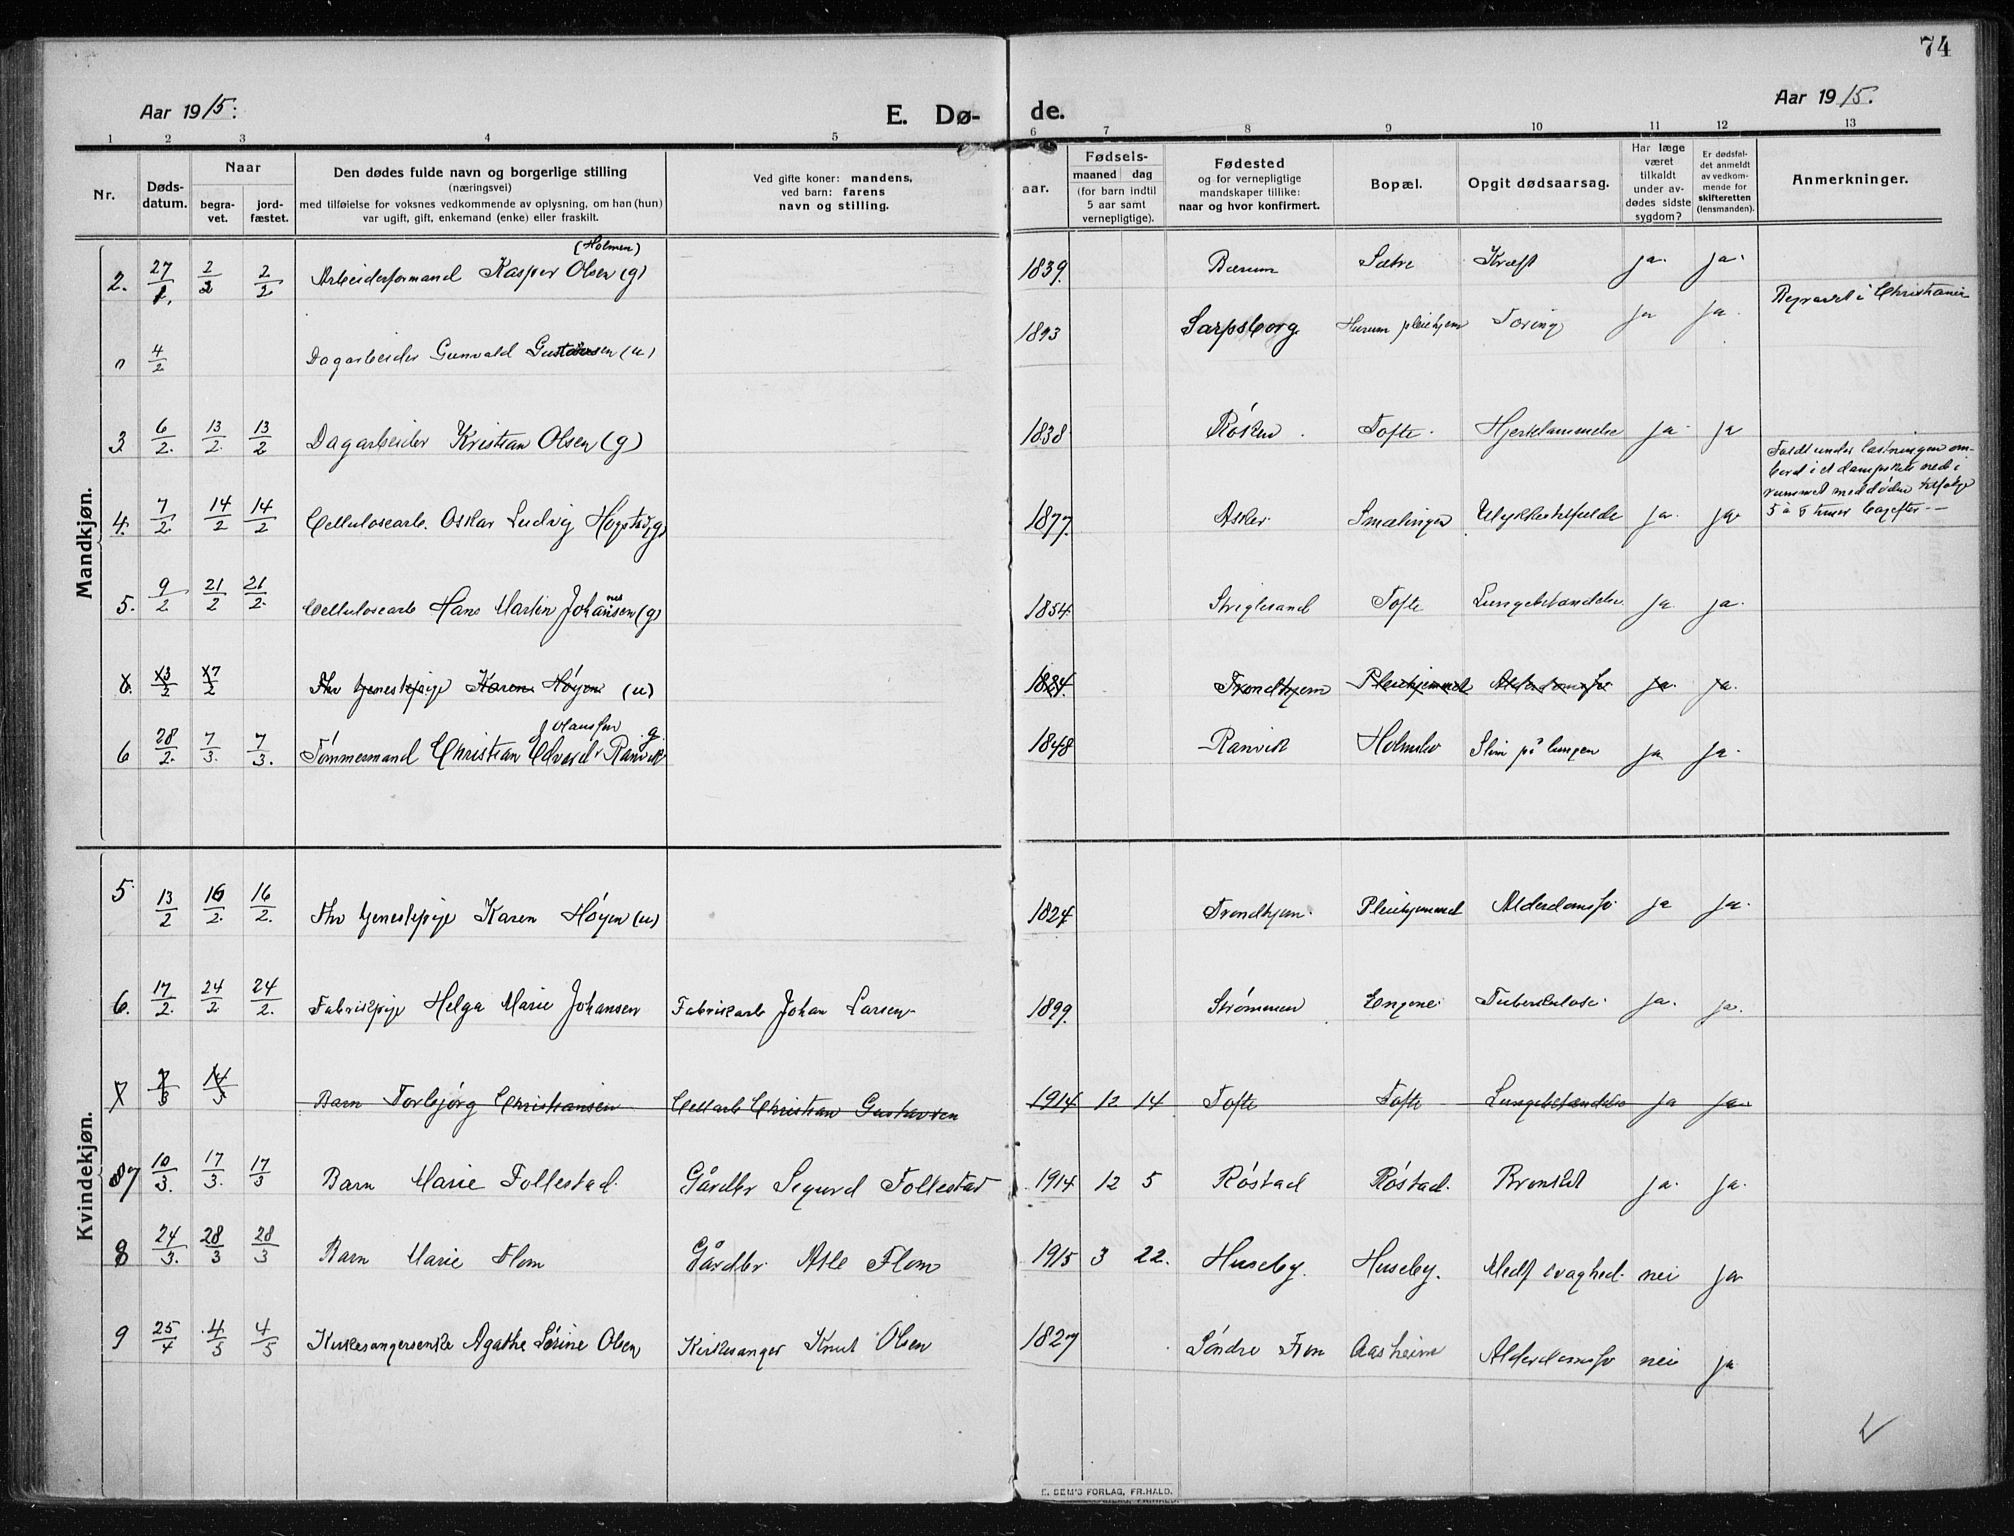 74
Aar 1915.
E. Dø-
de.
Aar 1915.
1 2 3 4 5 6 7 8 9 10 11 12 13
Nr.
Døds-
datum.
Naar
begra-
vet.
jord-
fæstet.
Den dødes fulde navn og borgerlige stilling
(næringsvei)
med tilføielse for voksnes vedkommende av oplysning, om han (hun)
var ugift, gift, enkemand (enke) eller fraskilt.
Ved gifte koner: mandens,
ved barn: farens
navn og stilling.
aar.
Fødsels-
maaned dag
(for barn indtil
5 aar samt
vernepligtige).
Fødested
og for vernepligtige
mandskaper tillike:
naar og hvor konfirmert.
Bopæl.
Opgit dødsaarsag.
Har læge
været
tilkaldt
under av-
dødes sidste
sygdom?
Er dødsfal-
det anmeldt
av vedkom-
mende for
skifteretten
(lensmanden).
Anmerkninger.
Mandkjøn.
(Holmen)
2. 27/1. 2/2 2/2 Arbeiderformand Kasper Olsen (g) 1839. Bærum Sætre Kræft ja. ja.
Begravet i Christiania
" 4/2 Dagarbeider Gunvald Gustavsen (u) 1893 Sarpsborg Hurum pleiehjem Tæring ja ja.
3. 6/2. 13/2. 13/2 Dagarbeider Kristian Olsen (g) 1838. Røken. Tofte. Hjertelammelse ja. ja
Faldt under lastningen om-
bord i et dampskib ned i
rummet med døden tilfølge
5 à 6 timer bagefter.
4. 7/2. 14/2 14/2 Cellulosearb. Oskar Ludvig Hogstad (g) 1877. Asker. Smælingen Ulykkestilfælde ja. ja.
5. 9/2 21/2 21/2. Cellulosearb Hans Martin Johannessen (g) 1854. Tofte Lungebetændelse ja. ja.
6. 13/2 17/2 Fhv tjenestepige Karen Høyen (u) 1824. Trondhjem Pleiehjemmet Alderdomssv ja. ja.
Olaussen g.
6 28/2. 7/3. 7/3. Tømmermand Christian Edvard Ranvik 1848. Ranvik Holmsbo Slim på lungen ja ja.
Kvindekjøn.
5. 13/2 16/2. 16/2. Fhv tjenestepige Karen Høyen (u) 1824 Trondhjem. Pleiehjemmet Alderdomssv. ja ja.
6. 17/2. 24/2 24/2. Fabrikpige Helga Marie Johansen Fabrikarb Johan Larsen 1899. Strømmen Engene. Tuberkulose. ja. ja.
7 7/3 14/3 Barn Torbjørg Christiansen Cellarb Christian Gustavsen 1914 12 14 Tofte Tofte Lungebetændelse ja ja
8 7 10/3. 17/3. 17/3 Barn Marie Follestad. Gårdbr Sigurd Follestad 1914 12 5 Røstad Røstad. Bronkit ja. ja.
8 24/3. 28/3 28/3 Barn Marie Flom Gårdbr. Asle Flom 1915 3 22. Huseby. Huseby. Medf svaghed. nei ja
9 25/4 4/5 4/5 Kirkesangerenke Agathe Sørine Olsen Kirkesanger Knut Olsen 1827 Søndre Fron Aasheim Alderdomssv nei ja
E. SEM'S FORLAG, FR.HALD.